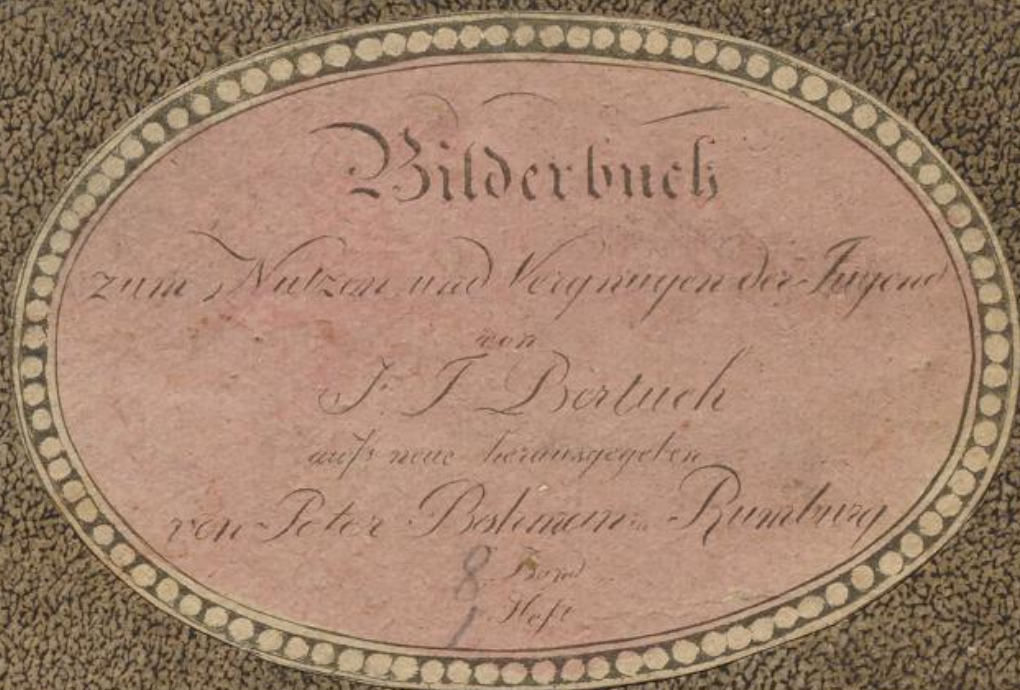 Bilderbuch
zum Nutzen und Vergnügen der Jugend
von
F. J. Bertuch
aufs neue herausgegeben
von Peter Bohmann in Rumburg
8 Band
1 Heft